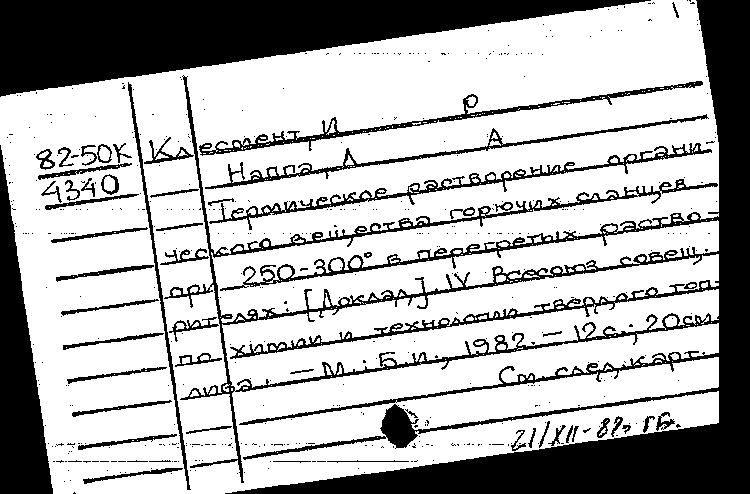 1
82-50К Клесмент, И Р
4340 Наппа, Л А
Термическое растворение органи-
ческого вещества горючих сланцев
при 250-300° в перегретых раство-
рителях: [Доклад]. IV Всесоюз совещ.
по химии и технологии твердого топ-
лива. — М.: Б. и., 1982. — 12 с.; 20 см.
См. след. карт.
21/XII-82